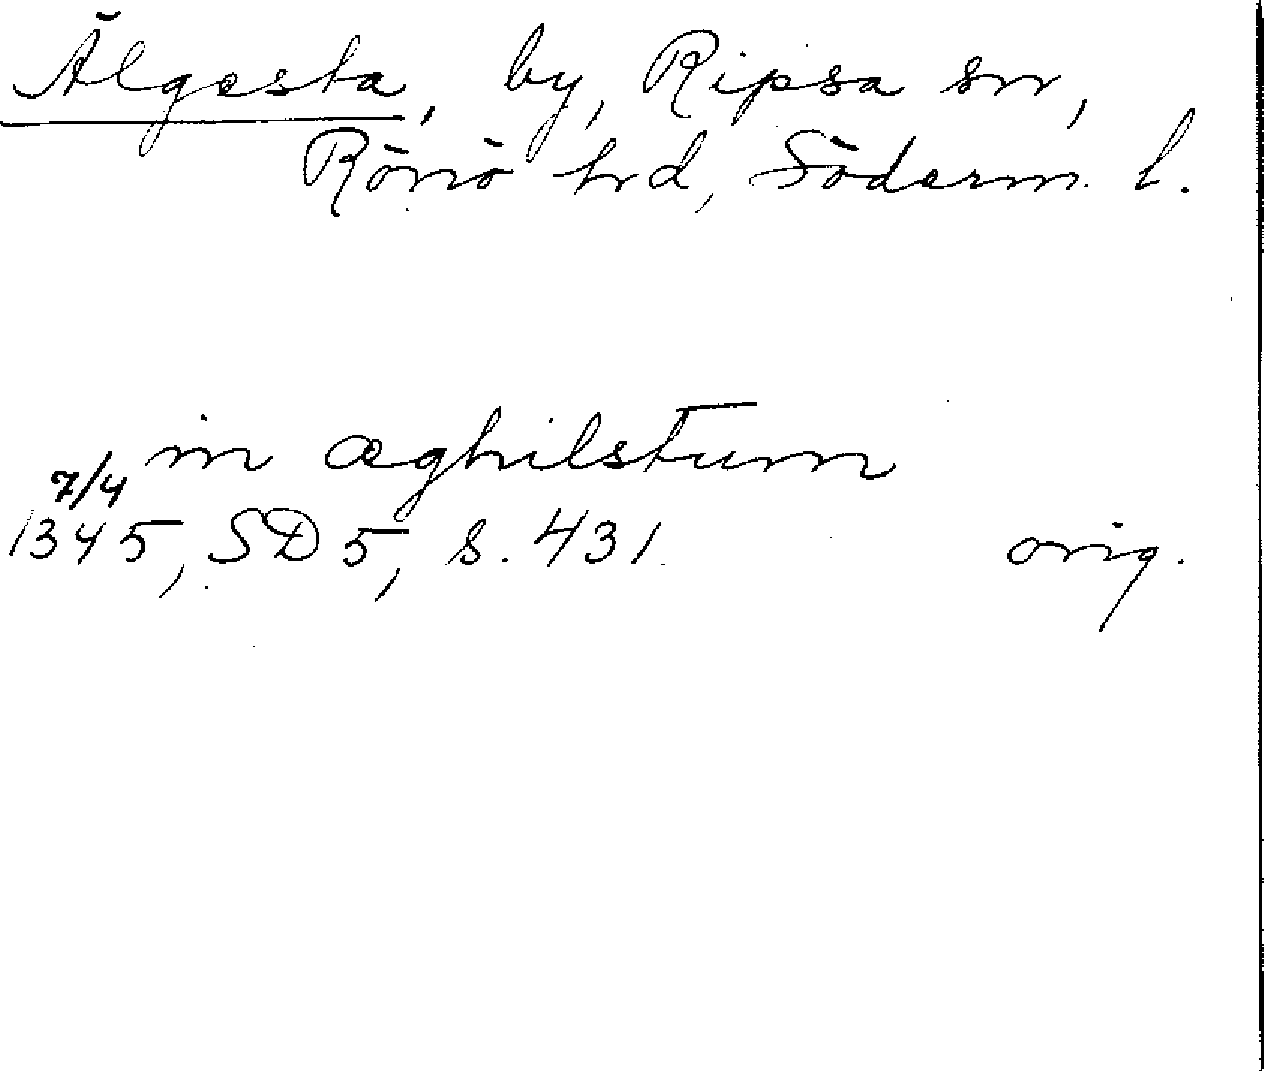 Älgesta, by, Ripsa sn,
Rönö hd, Söderm. l.
in æghilstum
7/4
1345, SD 5, s. 431. orig.